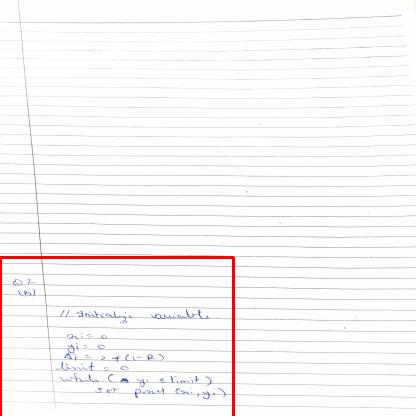 Q2
(b)
// Initialize variable.
xi = 0
yi = 0
Δi = 2*(1-R)
limit = 0
while ( yi ≤ limit)
set pixel (xi, yi)